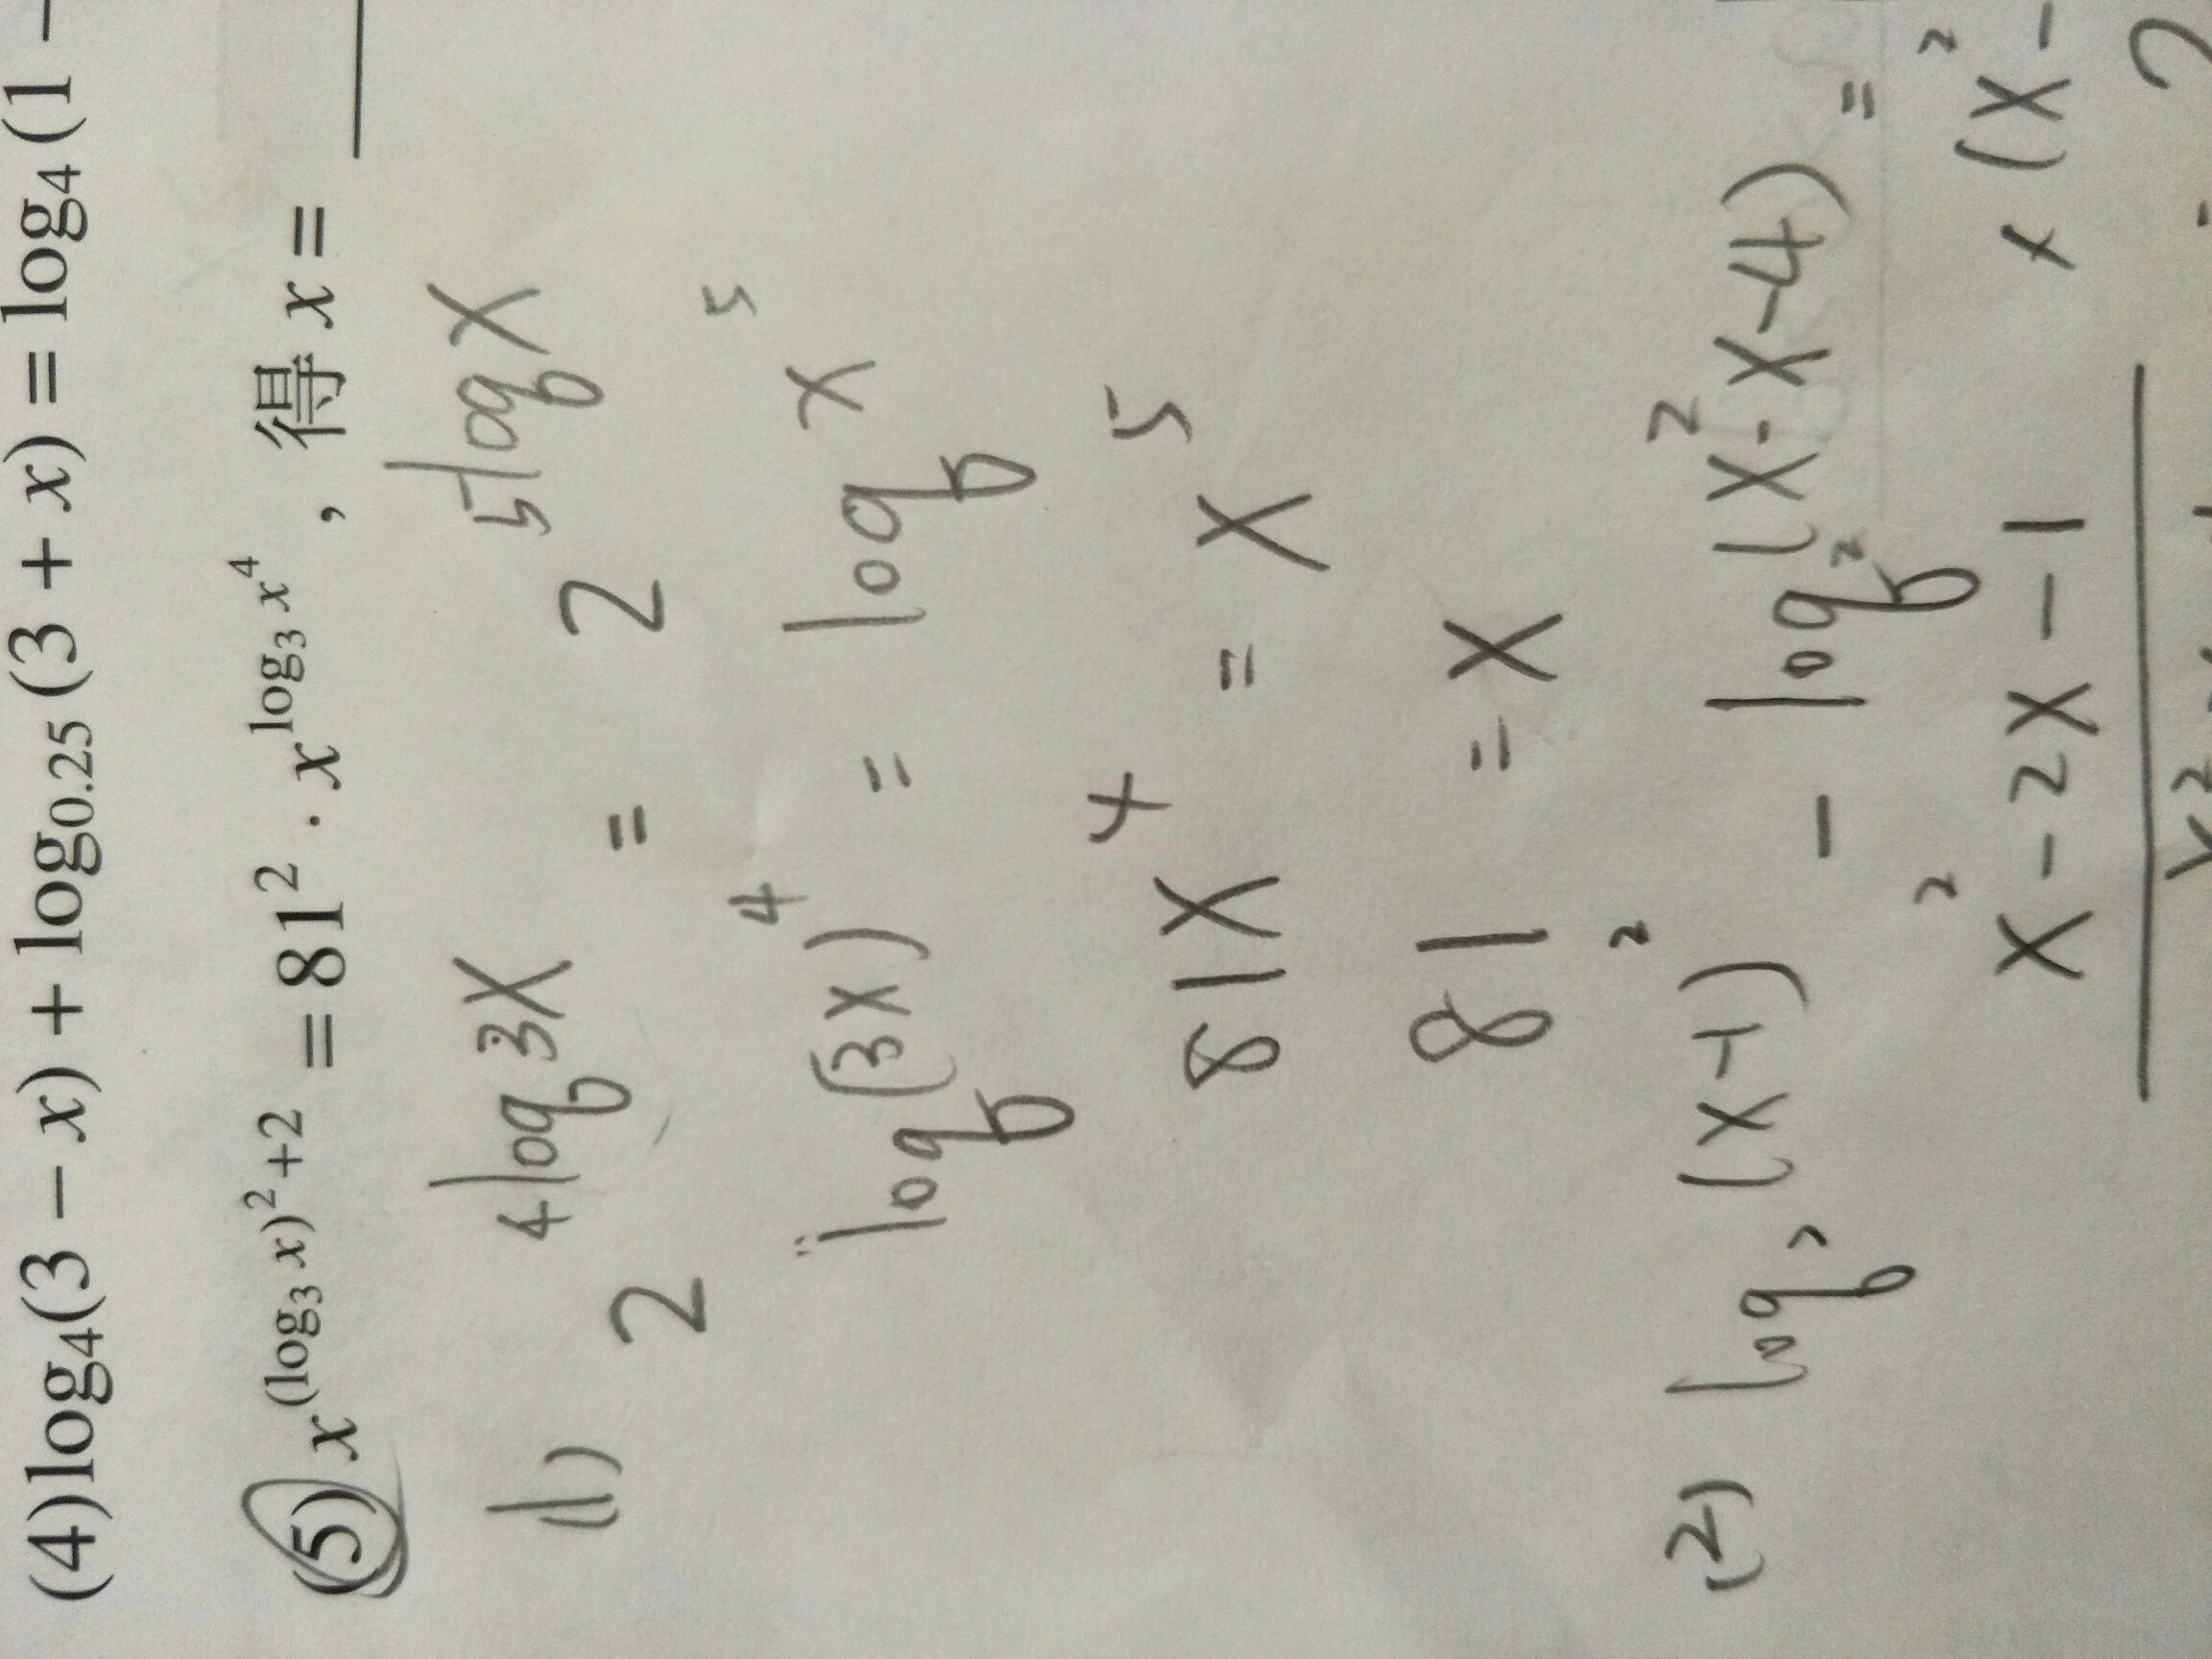 (4)log₄(3 − x) + log₀.₂₅ (3 + x) = log₄ (1 −
(5) x^((log₃ x)²+2) = 81² · x^(log₃ x⁴) , 得 x = ____
(1) 2^(4log3X) = 2^(5logX)
log(3X)⁴ = logX⁵
81X⁴ = X⁵
81 = X
(2) log₂(X-1)² - log₂(X²-X-4) =
X²-2X-1 × (X²-
X²